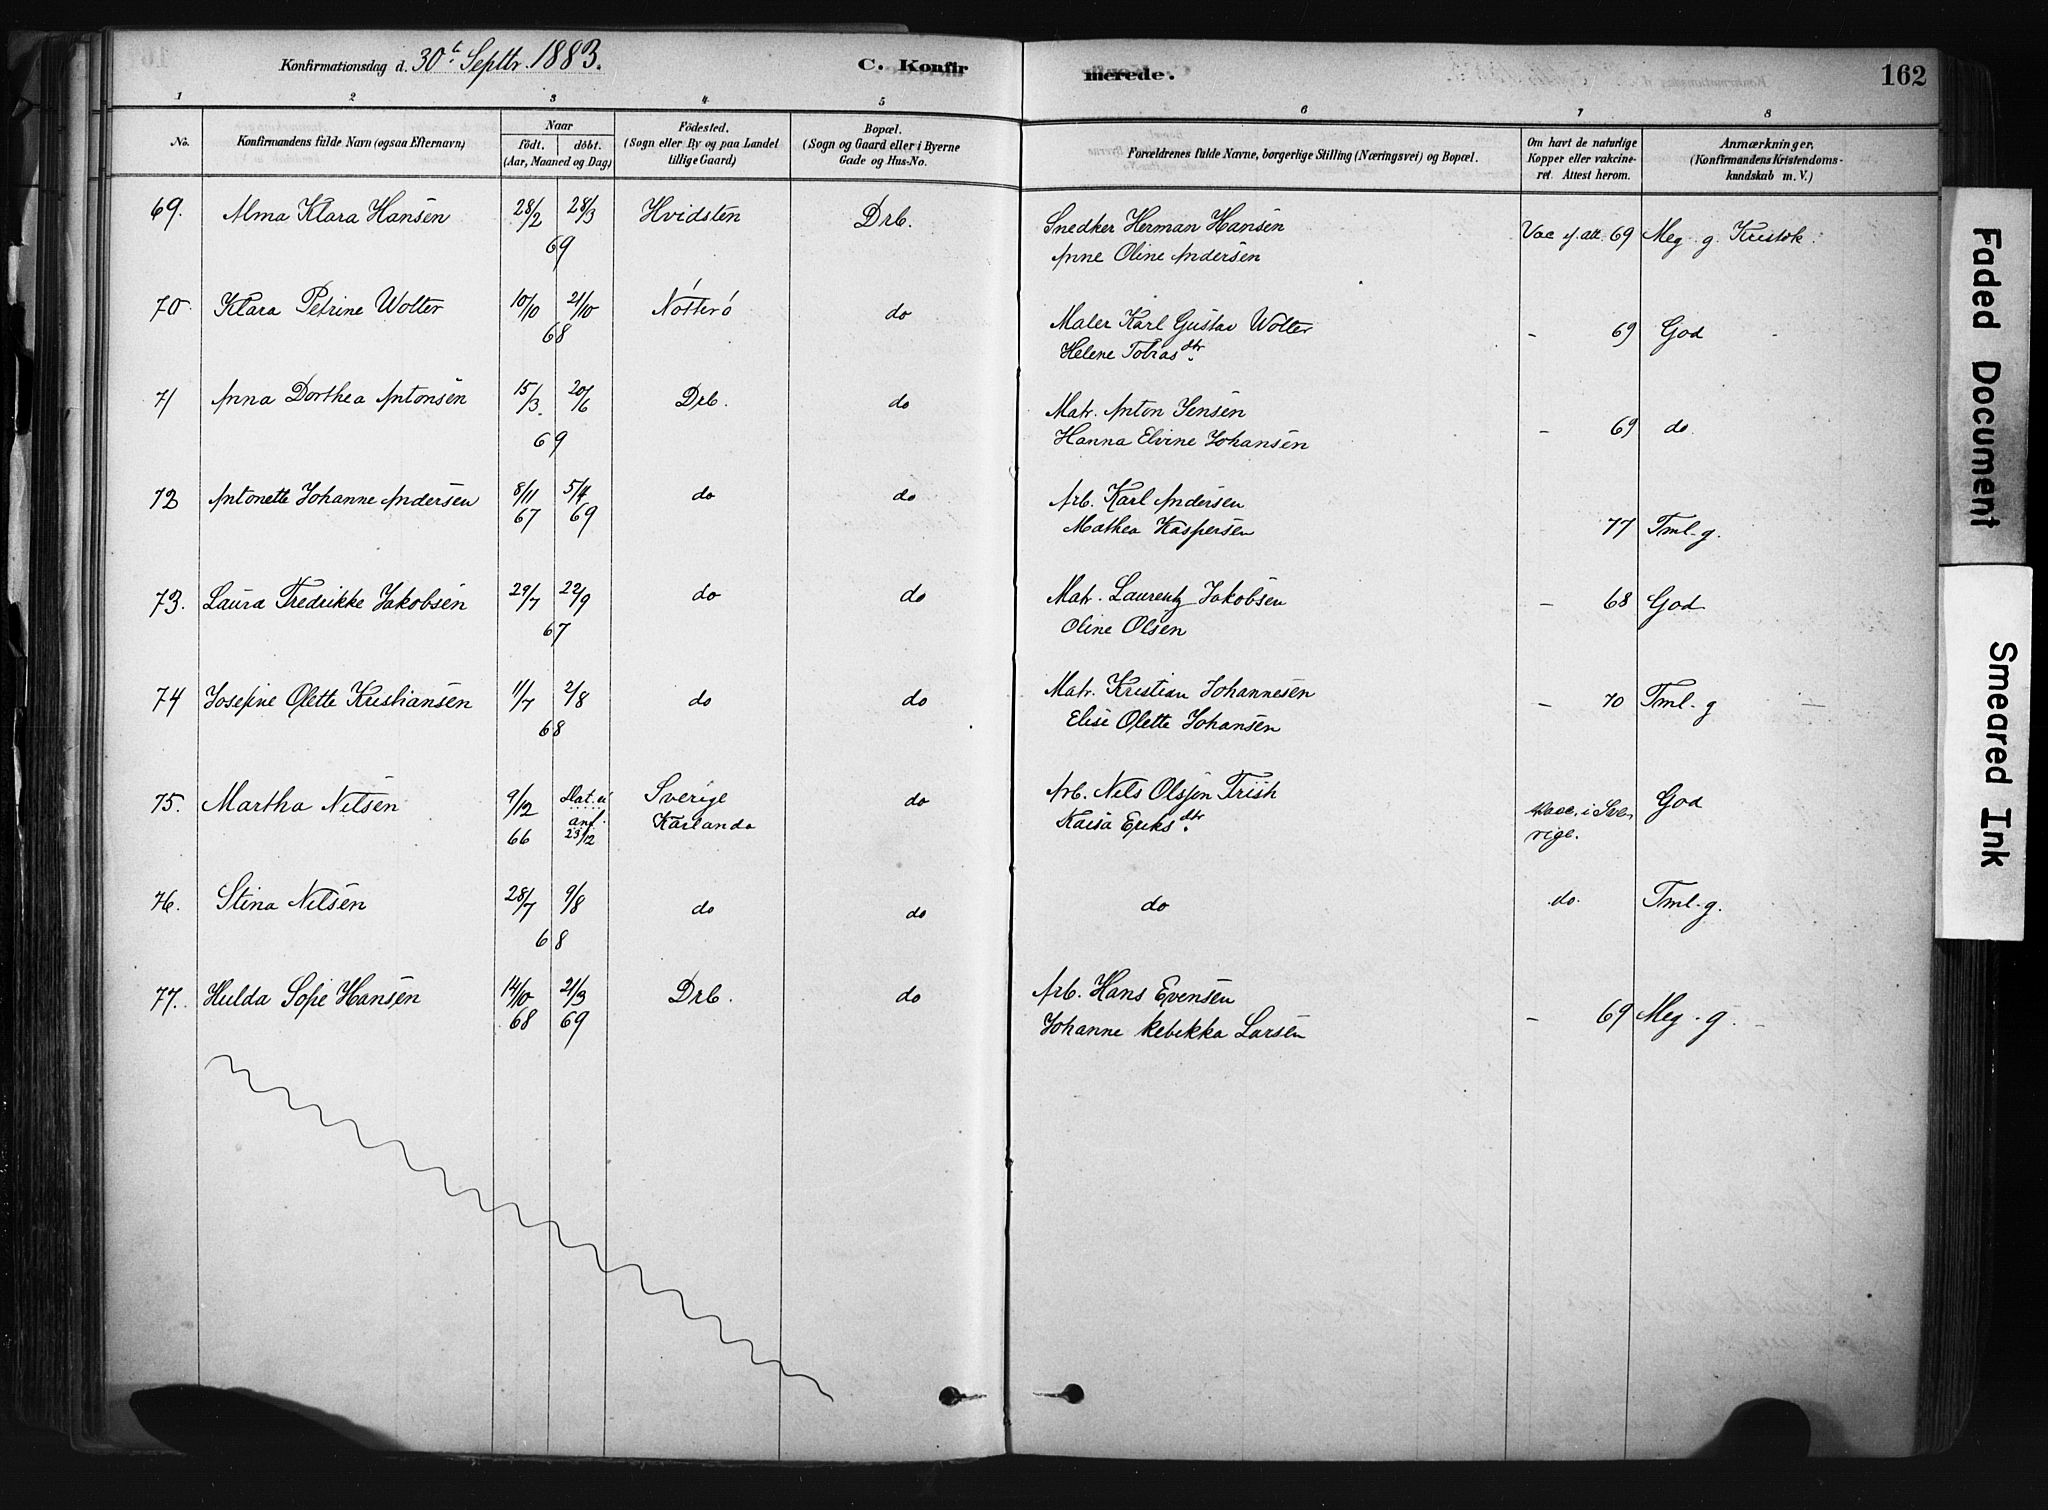 Konfirmationsdag d. 30te Septbr. 1883.
C. Konfirmerede.
162
1 2 3 4 5 6 7 8
No.
Konfirmandens fulde Navn (ogsaa Efternavn)
Naar
födt. döbt.
(Aar, Maaned og Dag)
Födested.
(Sogn eller By og paa Landet
tillige Gaard)
Bopæl.
(Sogn og Gaard eller i Byerne
Gade og Hus-No.
Forældrenes fulde Navne, borgerlige Stilling (Næringsvei) og Bopæl.
Om havt de naturlige
Kopper eller vakcine-
ret. Attest herom.
Anmærkninger.
(Konfirmandens Kristendoms-
kundskab m. V.)
69. Alma Klara Hansen 28/2 28/3 Hvidsten Drb. Snedker Herman Hansen Vac if. att. 69 Meg. g. Kristdk.
69 Anne Oline Andersen
70. Klara Petrine Wolter 10/10 21/10 Nötterö do Maler Karl Gustav Wolter - 69 God
68 Helene Tobiasdtr.
71 Anna Dorthea Antonsen 15/3. 20/6 Drb. do Matr. Anton Jensen - 69 do
69 Hanna Elvine Johansen
72 Antonette Johanne Andersen 8/11 5/4 do do Arb. Karl Andersen
67 69 Mathea Kaspersen - 77 Tml-g.
73. Laura Fredrikke Jakobsen 29/7 22/9 do do Matr. Laurentz Jakobsen - 68 God
67 Oline Olsen
74 Josefine Olette Kristiansen 11/7 2/8 do do Matr. Kristian Johannesen - 70 Tml-g
68 Elise Olette Johansen
75. Martha Nilsen 9/12 Dat. ei Sverige do Arb. Nils Olsen Trish Vacc. i Sve- God
66 anf. 23/12 Karlanda Kaisa Eriksdtr. rige.
76. Stina Nilsen 28/7 9/8 do do do do. Tml-g.
68
77. Hulda Sofie Hansen 14/10 21/3 Drb. do Arb. Hans Evensen - 69 Meg-g.
68 69 Johanne Rebekka Larsen
Faded Document
Smeared Ink